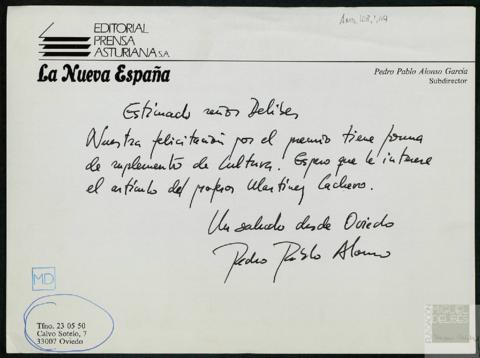 EDITORIAL
PRENSA
ASTURIANA S.A.
La Nueva España
Pedro Pablo Alonso García
Subdirector
Estimado señor Delibes
Nuestra felicitación por el premio tiene forma
de suplemento de Cultura. Espero que le interese
el artículo del profesor Martínez Cachero.
Un saludo desde Oviedo
Pedro Pablo Alonso
MD
Tfno. 23 05 50
Calvo Sotelo, 7
33007 Oviedo
DELIBES